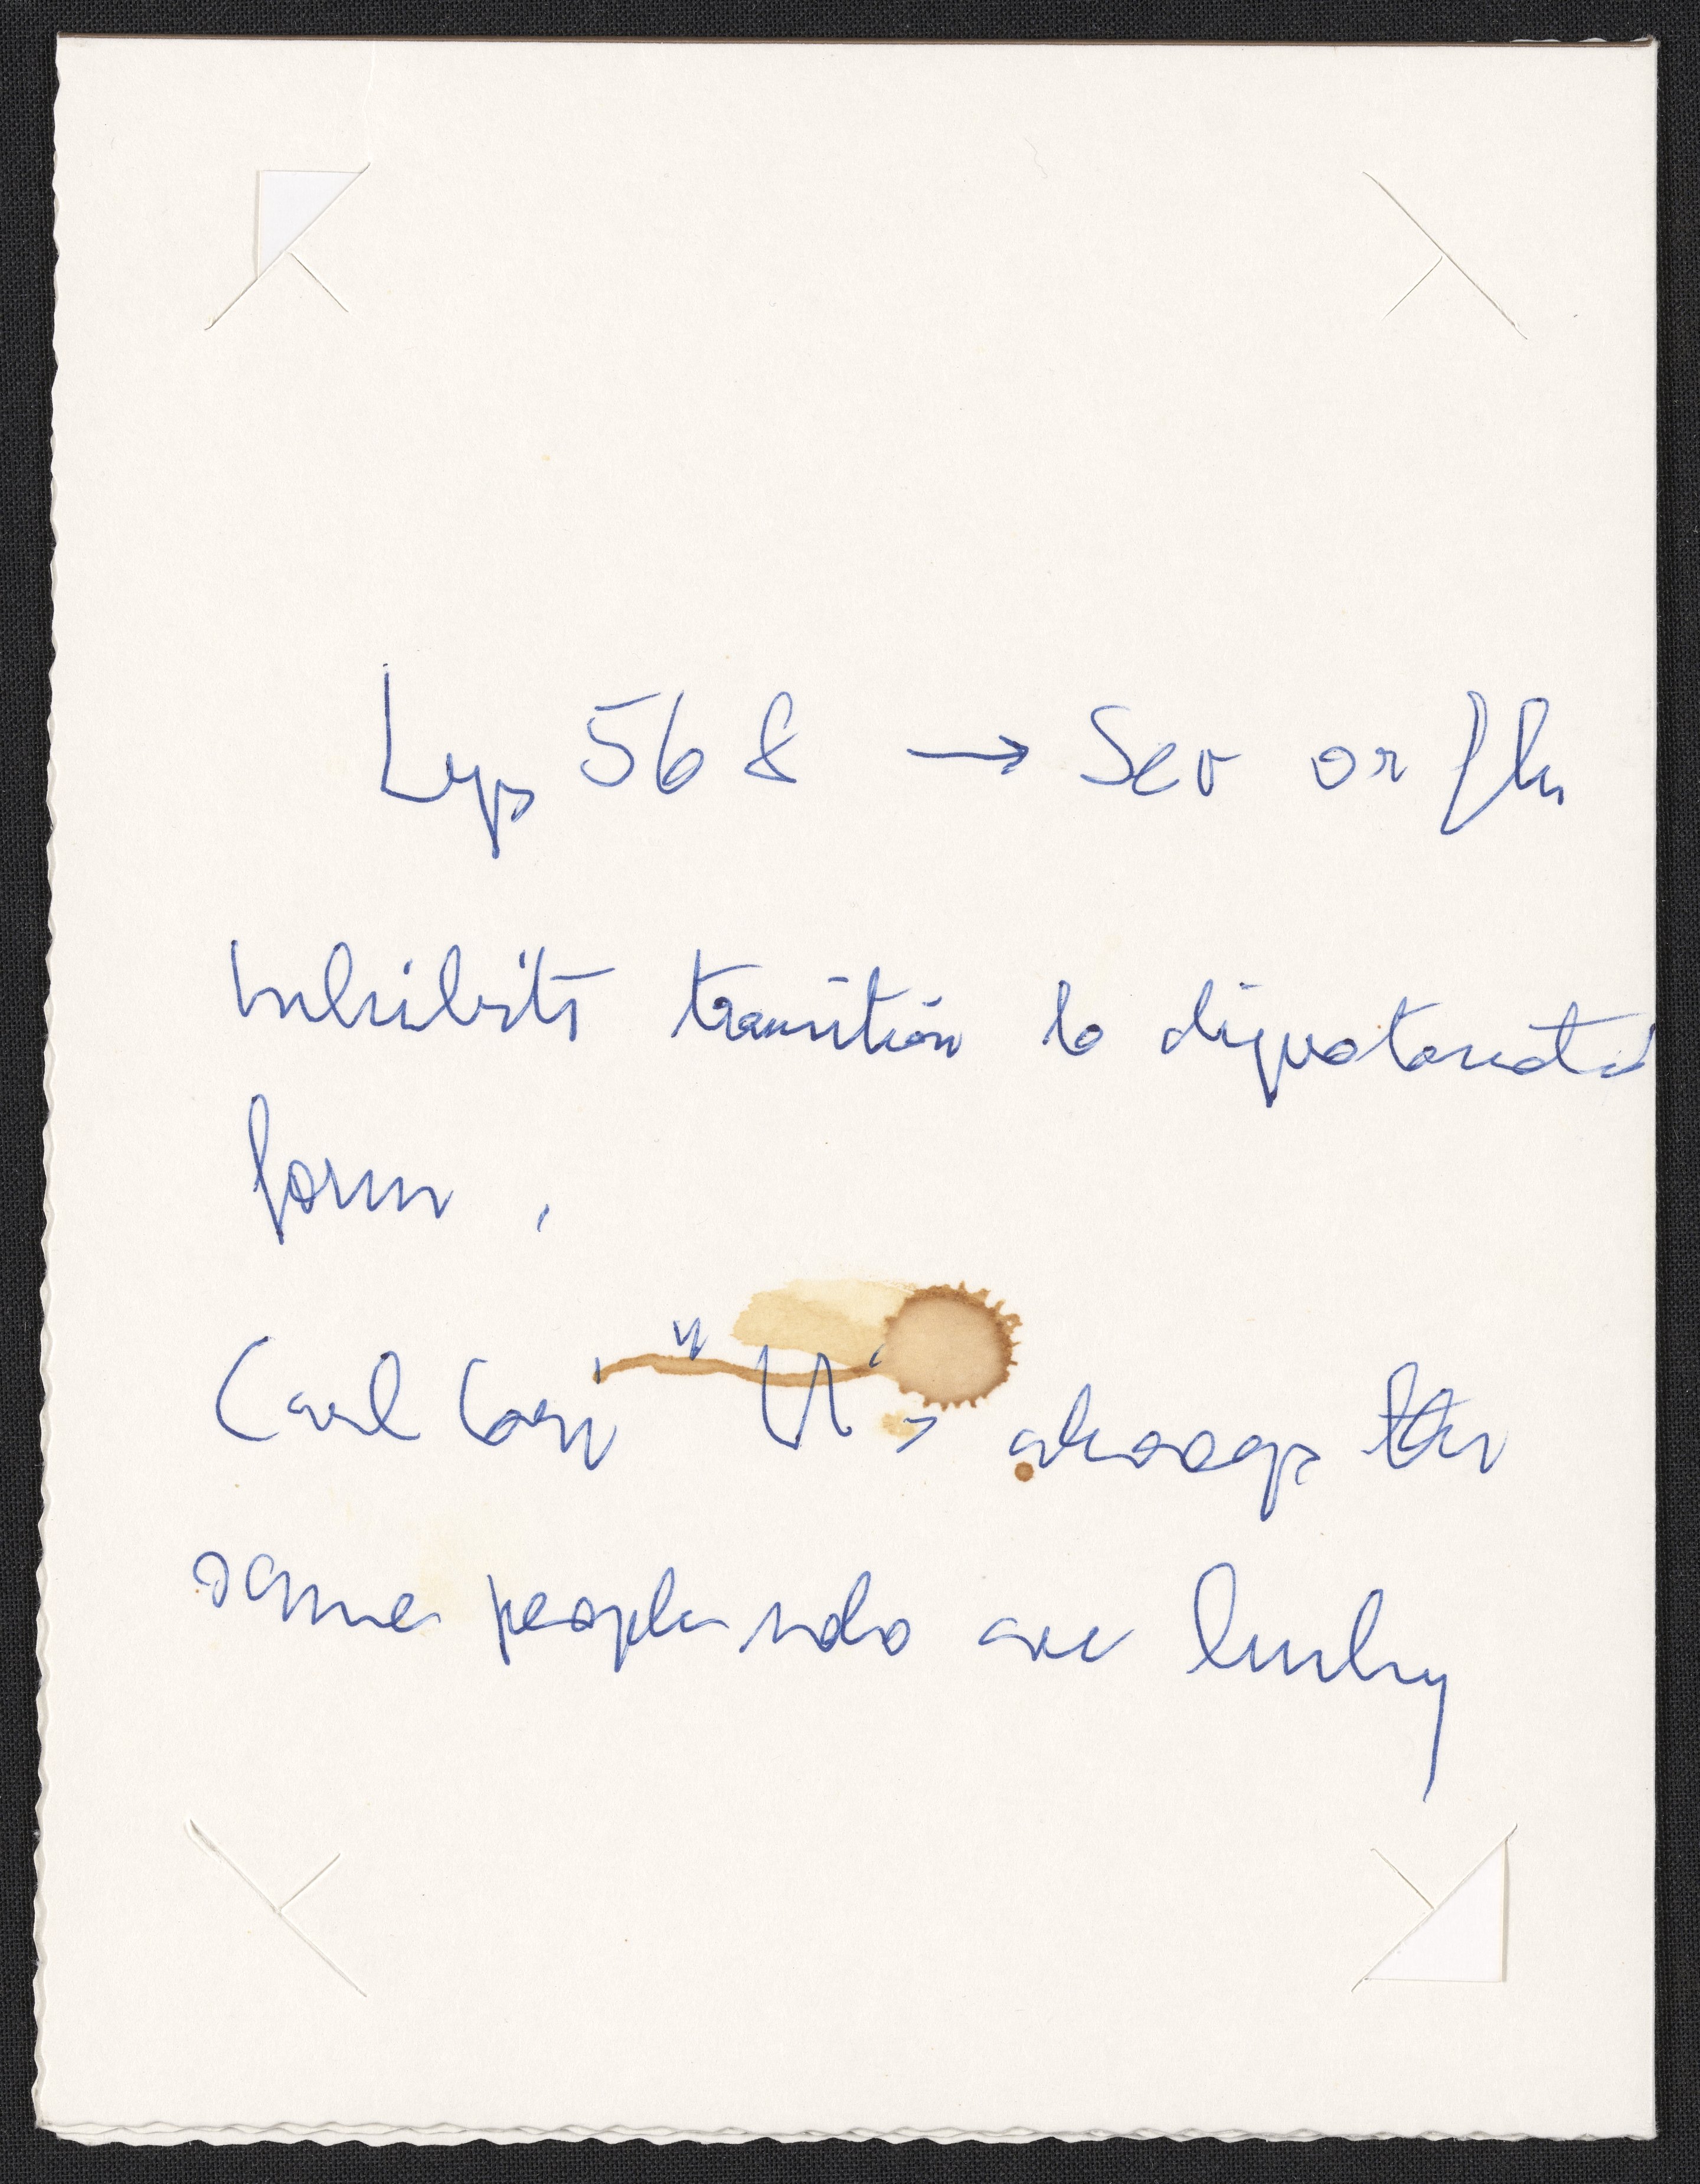 Lys 568 → Ser or Glu
inhibits transition to diprotonated
form.
Carl Cori " It is always the
same people who are lucky